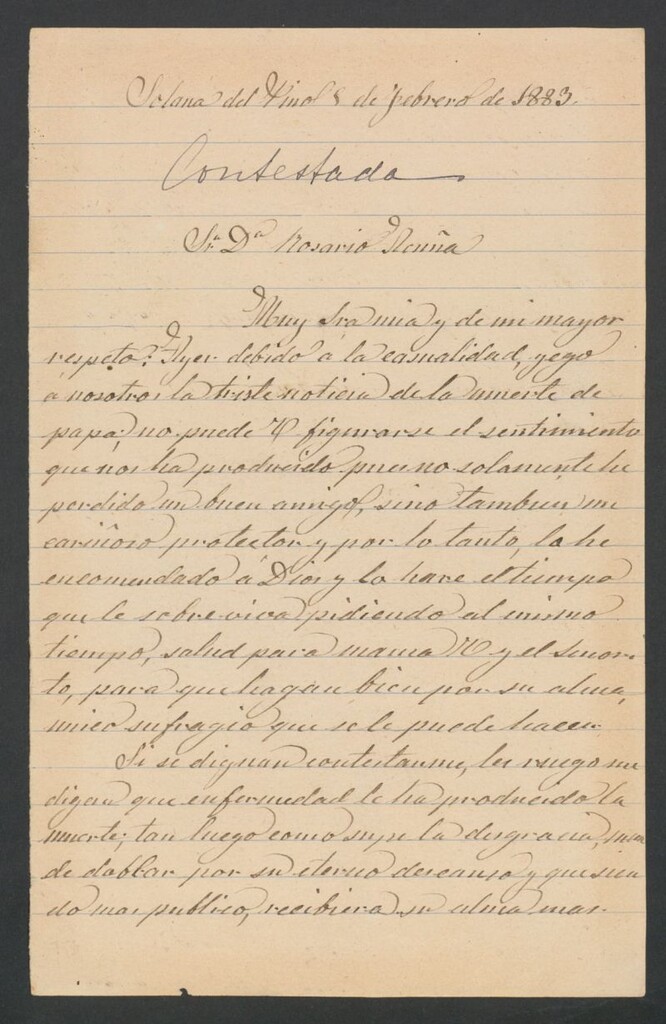 Solana del Pino 8 de febrero de 1883.
Contestada
Sra Da Rosario Acuña
Muy Sra mia y de mi mayor
respeto: Ayer debido á la casualidad, yego
á nosotros la triste noticia de la muerte de
papá, no puede V figurarse el sentimiento
que nos ha producido pues no solamente he
perdido un buen amigo, sino tambien un
cariñoso protector y por lo tanto, lo he
encomendado á Dios y lo hare el tiempo
que le sobreviva pidiendo al mismo
tiempo, salud para mama V y el señori-
to, para que hagan bien por su alma,
unico sufragio que se le puede hacer.
Si se dignan contestarme, les ruego me
digan que enfermedad le ha producido la
muerte; tan luego como supe la desgracia,
de doblar por su eterno descanso y que sien
do mas publico, recibiera su alma mas